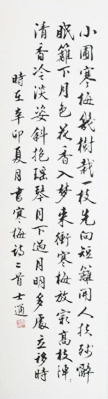 小圃寒梅幾樹栽一枝先向短籬開人從殘醉
眠籬下月色花香入夢來衝寒梅放最高枝
清香冷淡姿斜抱瑤琴月下過月明多處立移時
時在辛卯夏月書寒梅詩二首士通